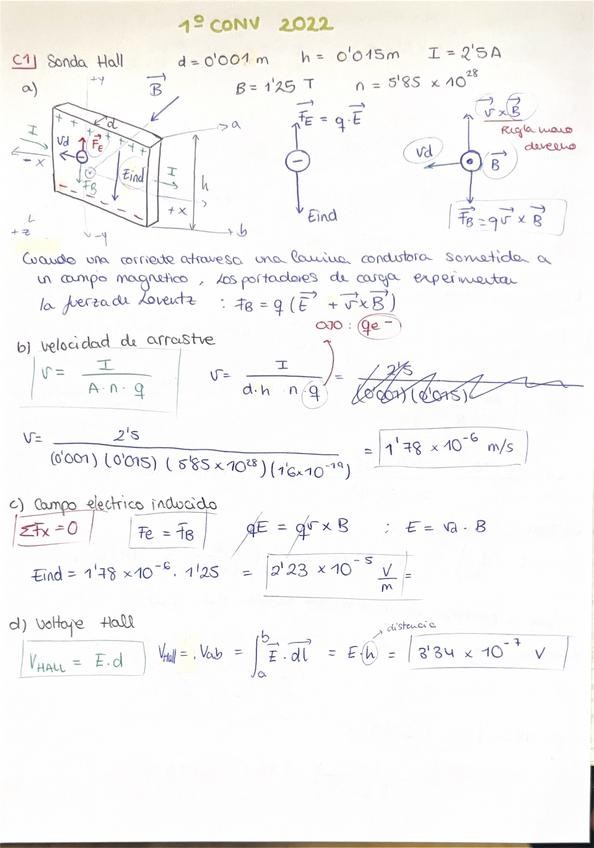 1º CONV 2022
C1] Sonda Hall d = 0'001 m h = 0'015m I = 2'5A
B = 1'25 T n = 5'85 × 10^28
a)
+y
B
d
a
I
Vd
FE
FB
Eind
I
h
-x
+x
+z
-y
b
FE = q·E
Eind
v × B
Regla mano derecha
Vd
B
FB = qv × B
Cuando una corriente atraviesa una lamina conductora sometida a
un campo magnetico, los portadores de carga experimentan
la fuerza de Lorentz : FB = q (E + v × B)
OJO: qe-
b) velocidad de arrastre
v = I / A·n·q v = I / d·h n·q = 2'5 / (0'001)(0'015)
v = 2'5 / (0'001)(0'015)(5'85×10^28)(1'6×10^-19) = 1'78 × 10^-6 m/s
c) Campo electrico inducido
ΣFx = 0 Fe = FB qE = qv × B ; E = vd · B
Eind = 1'78 × 10^-6 · 1'25 = 2'23 × 10^-5 V/m =
d) Voltaje Hall
distancia
VHALL = E.d VHall = Vab = ∫_a^b E · dl = E·h = 3'34 × 10^-7 V